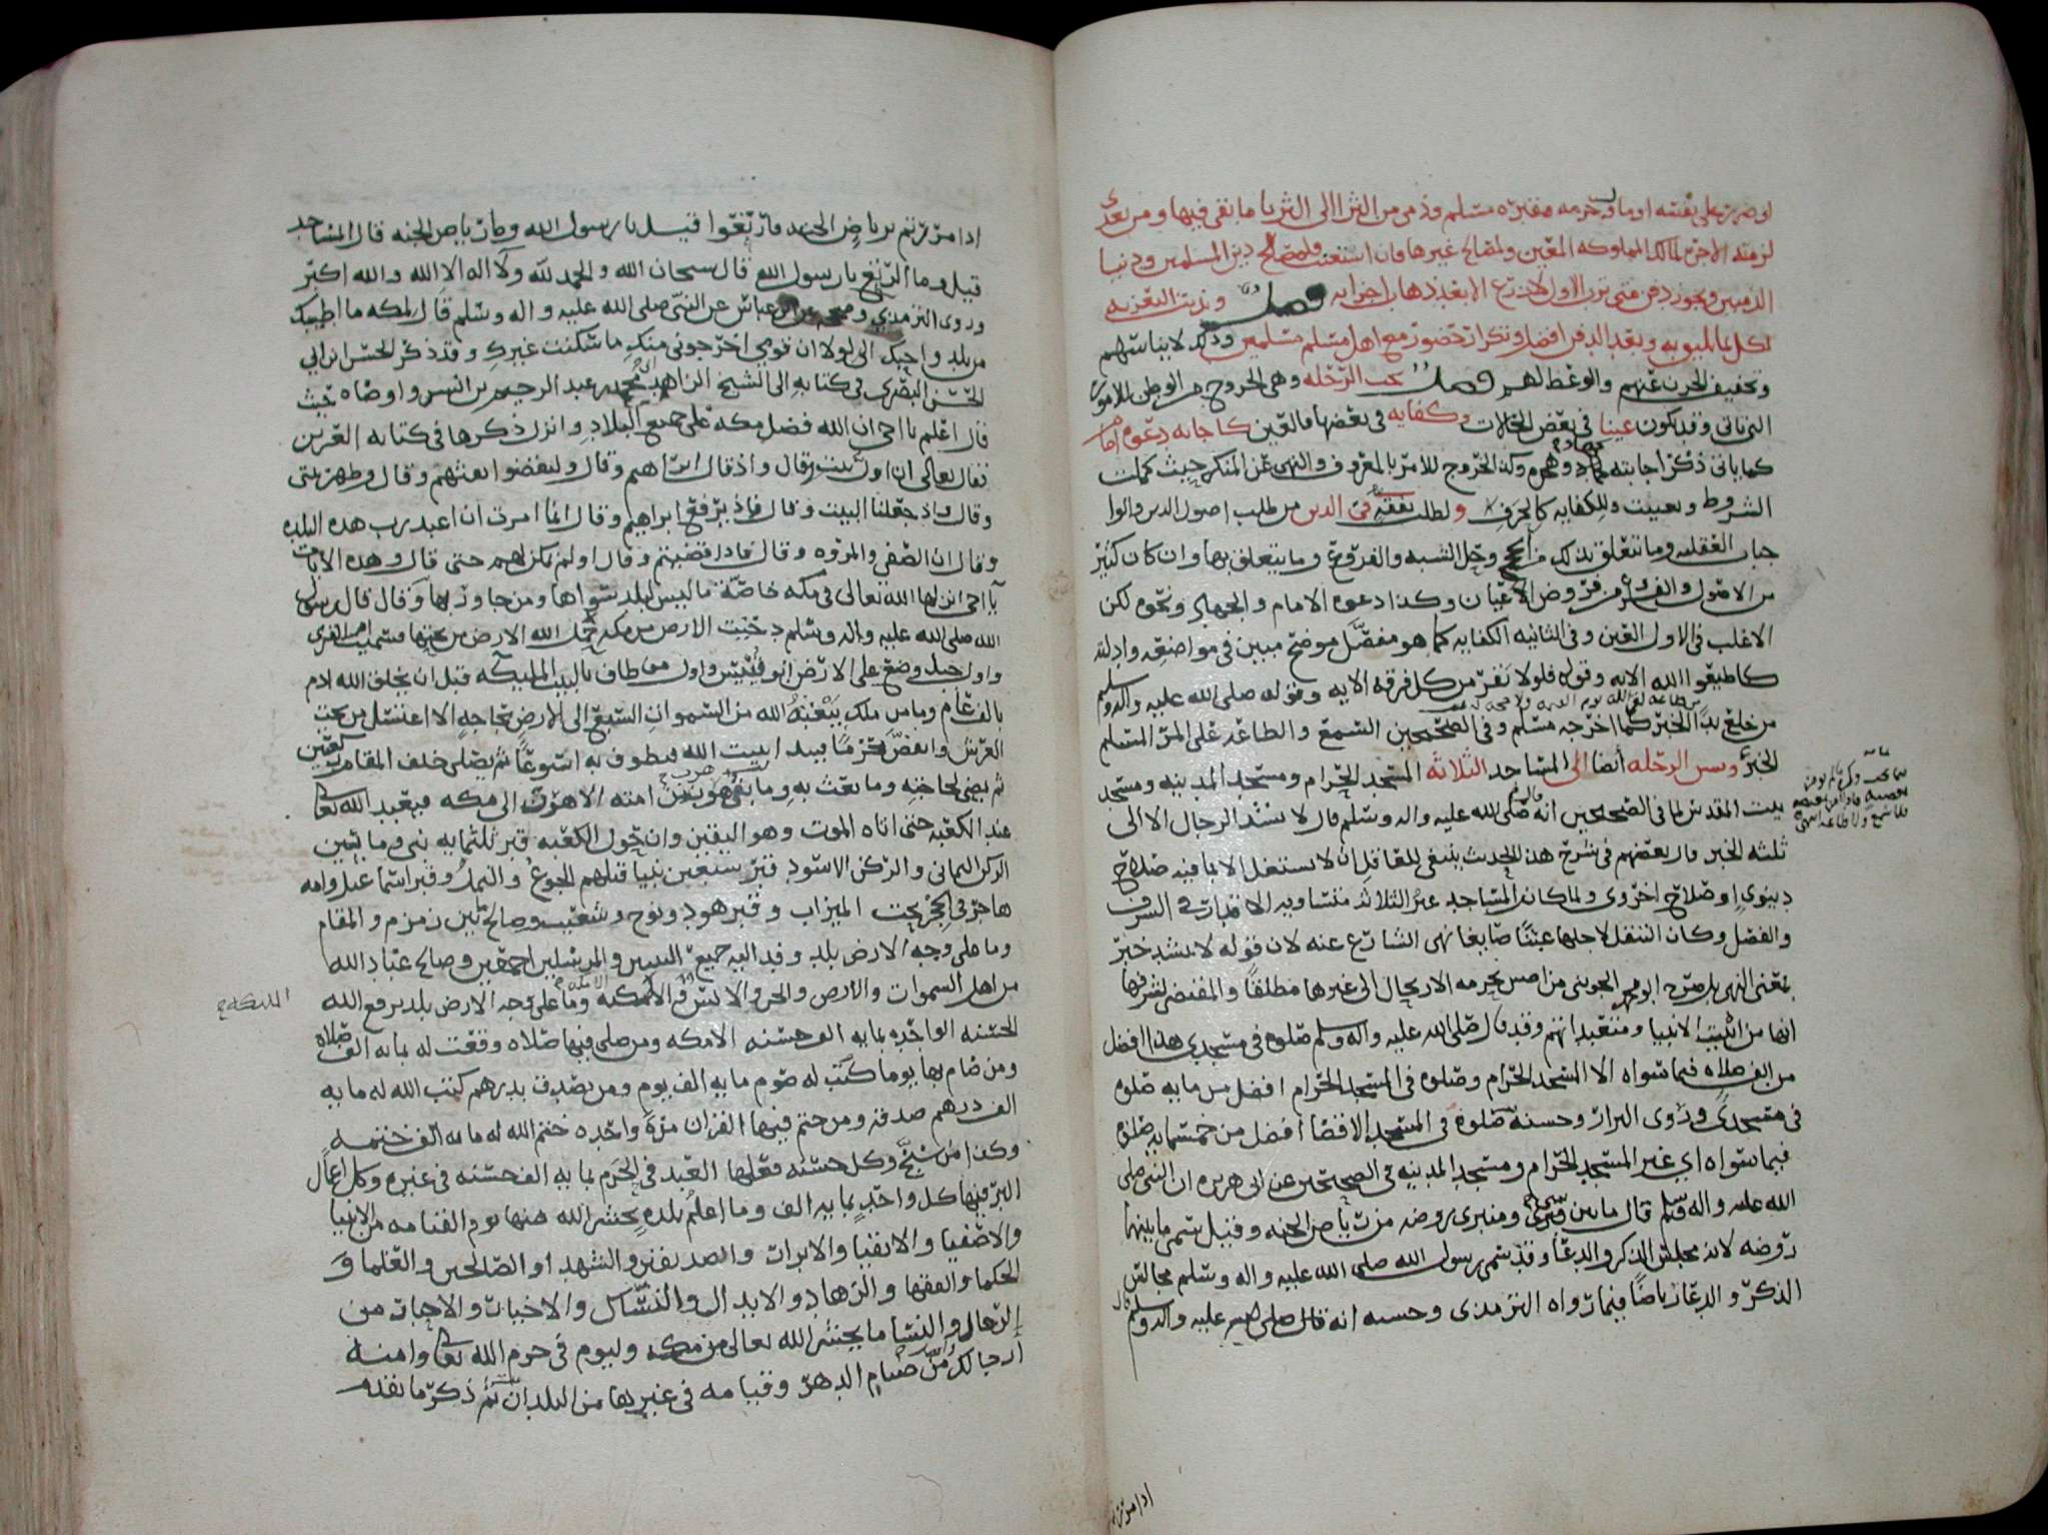 او ضرب على بقعته او ما وحرمه مقبره مسلم وذمي من الثرا الى الثريا ما بقى فيها ومن تعدى
لزمته الاجره لمالك المملوكه المعين ولمصالح غيرها فان استغنت فلمصالح دين المسلمين ودنيا
الذميين ويجوز دفن متى ترب الاول لا زرع الا بعد ذهاب اجزايه فصل وندبت التعزيه
لكل بما يليق به وبعد الدفن افضل وتكرار حضور مع اهل مسلم مسلمين وذلك لايناسهم
وتخفيف الحزن عنهم والوعظ لهم فصل يجب الرحله وهى الخروج من الوطن للامور
التى تاتى وقد يكون عينا فى بعض الحالات وكفايه فى بعضها فالعين كاجابه دعوه امام
كما ياتى ذكر اجابته وكذا الخروج للامر بالمعروف والنهى عن المنكر حيث كملت
الشروط وتعينت وللكفايه كالحرف ولطلب تفقه فى الدين من طلب اصول الدين والوا
جبات العقليه وما تتعلق بذلك من وحل الشبه والفروع وما يتعلق بها وان كان كثير
من الاصول والفروع من فروض الاعيان وكذا دعوه الامام والجهاد ونحوه لكن
الاغلب فى الاول العين وفى الثانيه الكفايه كما هو مفصل موضح مبين فى مواضعه وادلته
كاطيعوا الله الايه وقوله فلولا نفر من كل فرقه الايه وقوله صلى الله عليه واله وسلم
من خلع يدا الخبر كما اخرجه مسلم وفى الصحيحين السمع والطاعه على المرء المسلم
الخبر وسن الرحله أيضا الى المساجد الثلاثه المسجد الحرام ومسجد المدينه ومسجد
بيت المقدس لما فى الصحيحين انه صلى الله عليه واله وسلم قال لا تشد الرحال الا الى
ثلثه الخبر قال بعضهم فى شرح هذا الحديث ينبغى للعاقل ان لا يشتغل الا بما فيه صلاح
دنيوي او صلاح اخروى ولما كان المساجد غير الثلاثه متساويه الاقدار فى الشرف
والفضل وكان التنقل لاجلها عبثا ضايعا نهى الشارع عنه لان قوله لا تشد خبر
بمعنى النهى بل صرح ابو محمد الجوينى من بحرمه الارتحال الى غيرها مطلقا والمقتضى لشرفها
انها من ابنيت الانبيا ومتعبداتهم وقد قال صلى الله عليه واله وسلم صلوه فى مسجدى هذا افضل
من الف صلاه فيما سواه الا المسجد الحرام وصلوه فى المسجد الحرام افضل من مايه صلوه
فى مسجدى وروى البزار وحسنه صلوه فى المسجد الاقصا افضل من خمسمايه صلوه
فيما سواه اى غير المسجد الحرام ومسجد المدينه فى الصحيحين عن ابى هريره ان النبى صلى
الله عليه واله وسلم قال ما بين ومنبرى روضه من رياض الجنه وقيل سمى ما بينهما
روضه لانه مجلس الذكر والدعا وقد سمى رسول الله صلى الله عليه واله وسلم مجالس
الذكر والدعا رياضا فيما رواه الترمذى وحسنه انه قال صلى الله عليه واله وسلم
اذا مررتم
اذا مررتم برياض الجنه فارتعوا قيل يا رسول الله وما رياض الجنه قال المساجد
قيل وما الرتع يا رسول الله قال سبحان الله والحمد لله ولا اله الا الله والله اكبر
وروى الترمذى وصححه عن ابن عباس عن النبى صلى الله عليه واله وسلم قال لمكه ما اطيبك
من بلد واحبك الى لولا ان قومى اخرجونى منك ما سكنت غيرك وقد ذكر الحسن ابن ابى
الحسن البصرى فى كتابه الى الشيخ الزاهد عبد الرحيم بن انس واوصاه حيث
قال اعلم يا اخى ان الله فضل مكه على جميع البلاد وانزل ذكرها فى كتابه العزيز
فقال تعالى ان اول بيت وقال واذ قال ابراهيم وقال وليقضوا تفثهم وقال وطهر بيتى
وقال واذ جعلنا البيت وقال واذ يرفع ابراهيم وقال انما امرت ان اعبد رب هذه البلده
وقال ان الصفى والمروه وقال فاذا قضيتم وقال اولم نمكن لهم حتى قال وهذه الايات
يا اخى انزلها الله تعالى فى مكه خاصه ما ليس لبلد سواها ومن جاور بها وقال قال رسول
الله صلى الله عليه واله وسلم دحيت الارض من مكه الله الارض من تحتها فسميت ام القرى
واول جبل وضع على الارض ابو قبيس واول من طاف بالبيت المليكه قبل ان يخلق الله ادم
بالف عام وما من ملك يبعثه الله من السموات السبع الى الارض بحاجه الا اغتسل من تحت
العرش وانقض محرما فيبدا ببيت الله فيطوف به اسبوعا ثم يصلى خلف المقام ركعتين
ثم يمضى لحاجته وما بعث به وما من امته الا هرب الى مكه فيعبد الله تعالى
عند الكعبه حتى اتاه الموت وهو اليقين وان حول الكعبه قبر ثلثمايه نبى وما بين
الركن اليمانى والركن الاسود قبر سبعين نبيا قتلهم الجوع والقمل وقبر اسماعيل وامه
هاجر فى الحجر تحت الميزاب وقبر هود ونوح وشعيب وصالح بين زمزم والمقام
وما على وجه الارض بلد وفد اليه جميع النبيين والمرسلين اجمعين وصالح عباد الله
من اهل السموات والارض والجن والانس الا مكه وما على وجه الارض بلد يرفع الله
الحسنه الواحده بمايه الف حسنه الا مكه ومن صلى فيها صلاه وقعت له بمايه الف صلاه
ومن صام بها يوما كتب له صوم مايه الف يوم ومن تصدق بدرهم كتب الله له مايه
الف درهم صدقه ومن ختم فيها القران مره واحده ختم الله له مايه الف ختمه
وكذا من سبح وكل حسنه فعلها العبد فى الحرم بمايه الف حسنه فى غيره وكل اعمال
البر فيها كل واحد بمايه الف وما اعلم بلده يحشر الله منها يوم القيامه من الانبيا
والاصفيا والاتقيا والابرار والصديقين والشهدا والصالحين والعلما و
الحكما والفقها والزهاد والابدال والنساك والاخيات والاحبار من
الرجال والنسا ما يحشر الله تعالى من مكه وليوم فى حرم الله تعالى وامنه
ارجا لك من صيام الدهر وقيامه فى غيرها من البلدان ثم ذكر ما تقدم
المليكه